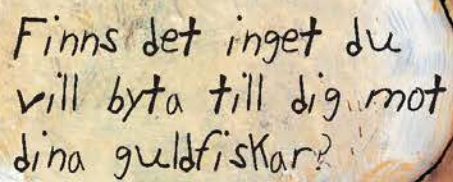 Finns det inget du
vill byta till dig mot
dina guldfiskar?